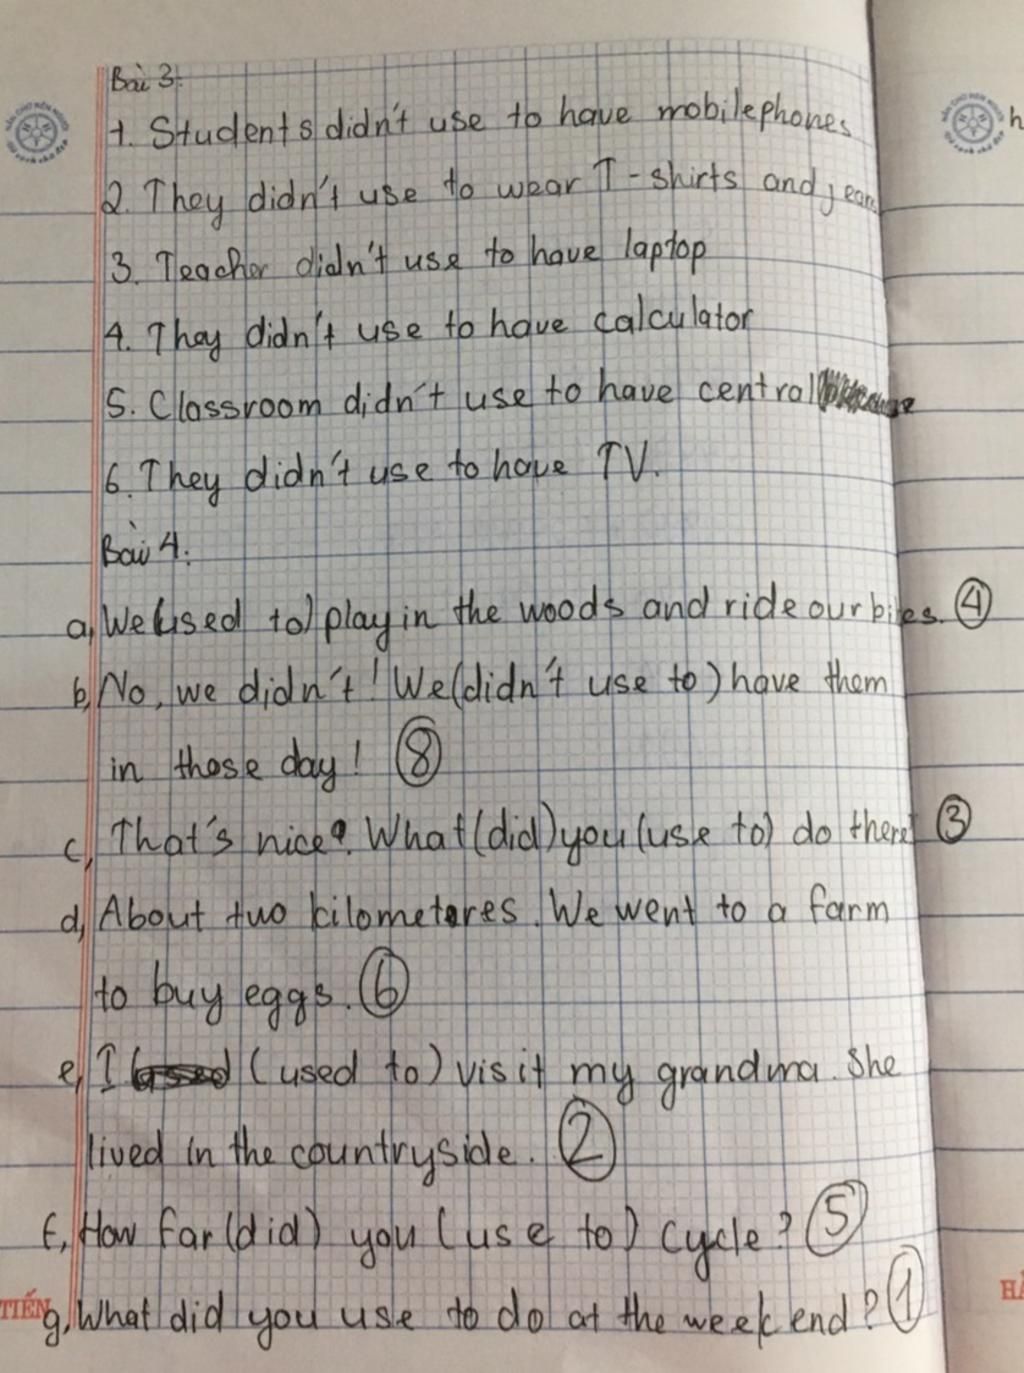 Bài 3:
1. Students didn't use to have mobilephones
2. They didn't use to wear T-shirts and jeans
3. Teacher didn't use to have laptop
4. They didn't use to have calculator
5. Classroom didn't use to have central
6. They didn't use to have TV.
Bài 4:
a, We (used to) play in the woods and ride our bikes. ④
b, No, we didn't! We (didn't use to) have them
in those day! ⑧
c, That's nice?. What (did) you (use to) do there? ③
d, About two kilometeres. We went to a farm
to buy eggs. ⑥
e, I (used to) visit my grandma. She
lived in the countryside. ②
f, How far (did) you (use to) cycle? ⑤
TIẾN
g, What did you use to do at the weekend? ①
h
HẢ